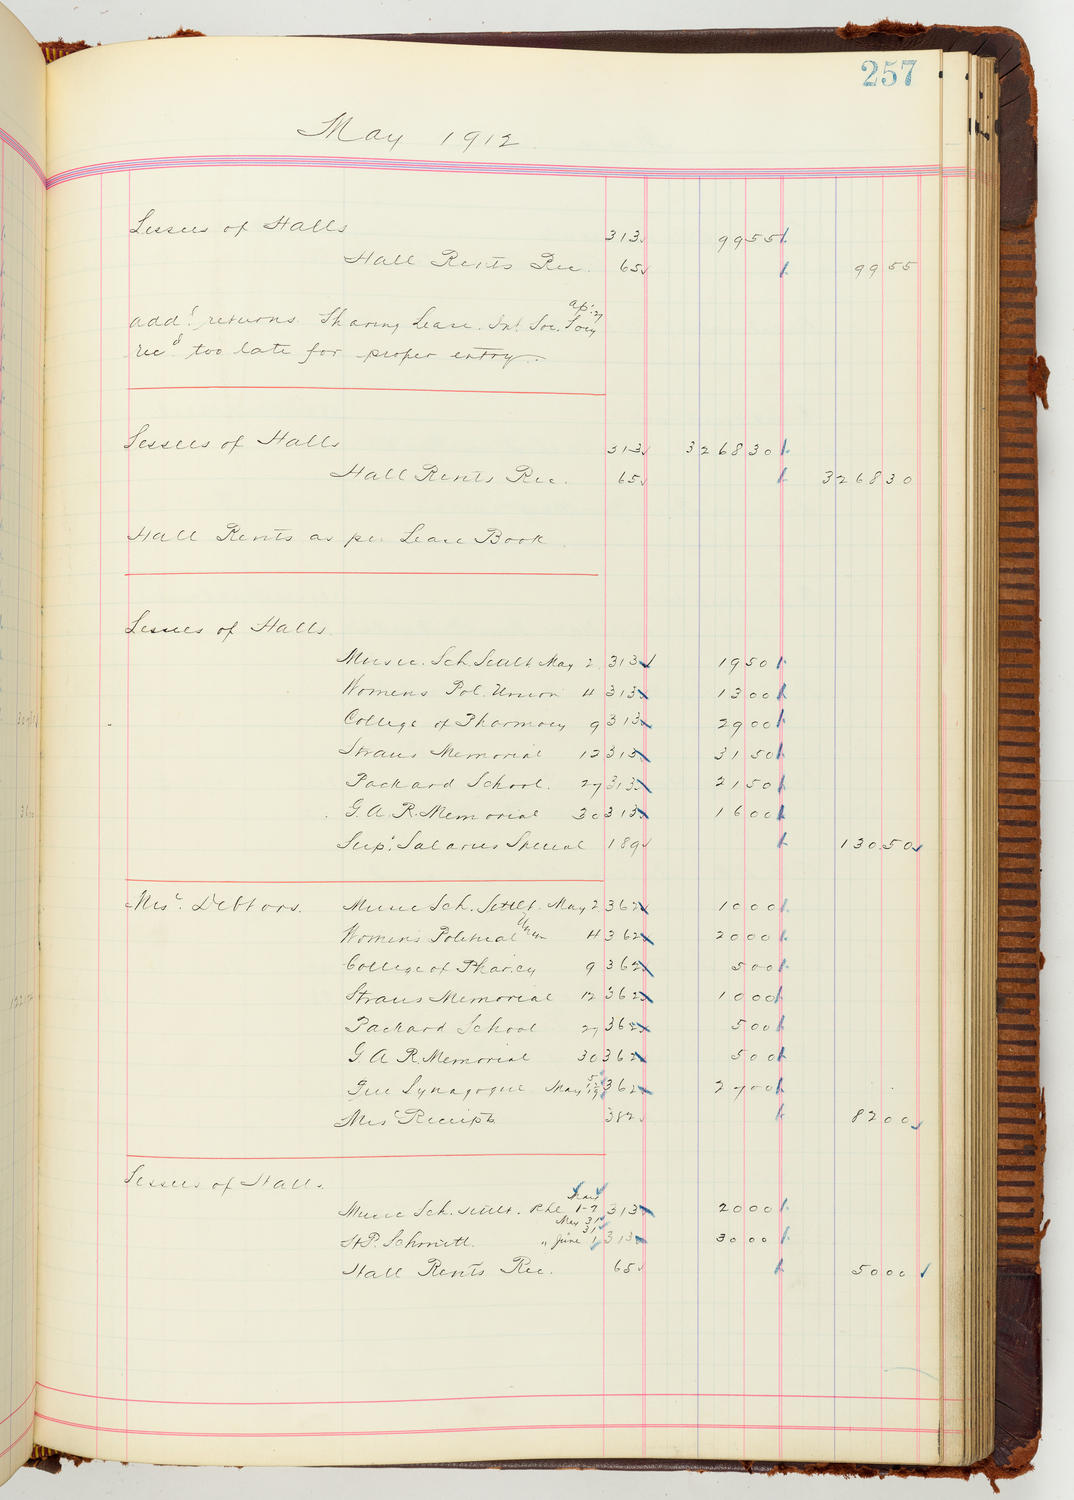 257
May 1912
Lessees of Halls 313 99 55
Hall Rents Rec. 65 99 55
add'l returns Sharing Lease Int. Soc. Ap. 27
rec'd too late for proper entry.
Lessees of Halls 313 3268 30
Hall Rents Rec. 65 3268 30
Hall Rents as per Lease Book
Lessees of Halls.
Music Sch. Settlt May 2 313 19 50
Womens Pol. Union 4 313 13 00
College of Pharmacy 9 313 29 00
Straus Memorial 12 313 31 50
Packard School. 27 313 21 50
G. A. R. Memorial 30 313 16 00
Sup't Salaries Special 189 130 50
Mis'c Debtors. Music Sch. Settlt. May 2 362 10 00
Womens Political Union 4 362 20 00
College of Phar'cy 9 362 5 00
Straus Memorial 12 362 10 00
Packard School 27 362 5 00
G. A. R. Memorial 30 362 5 00
Free Synagogue May 5 12 19 362 27 00
Mis'c Receipts 382 82 00
Lessees of Halls.
Music Sch. Settlt. Rhl 1-2 313 20 00
May 31
Schmitt. " June 1 313 30 00
Hall Rents Rec. 65 50 00